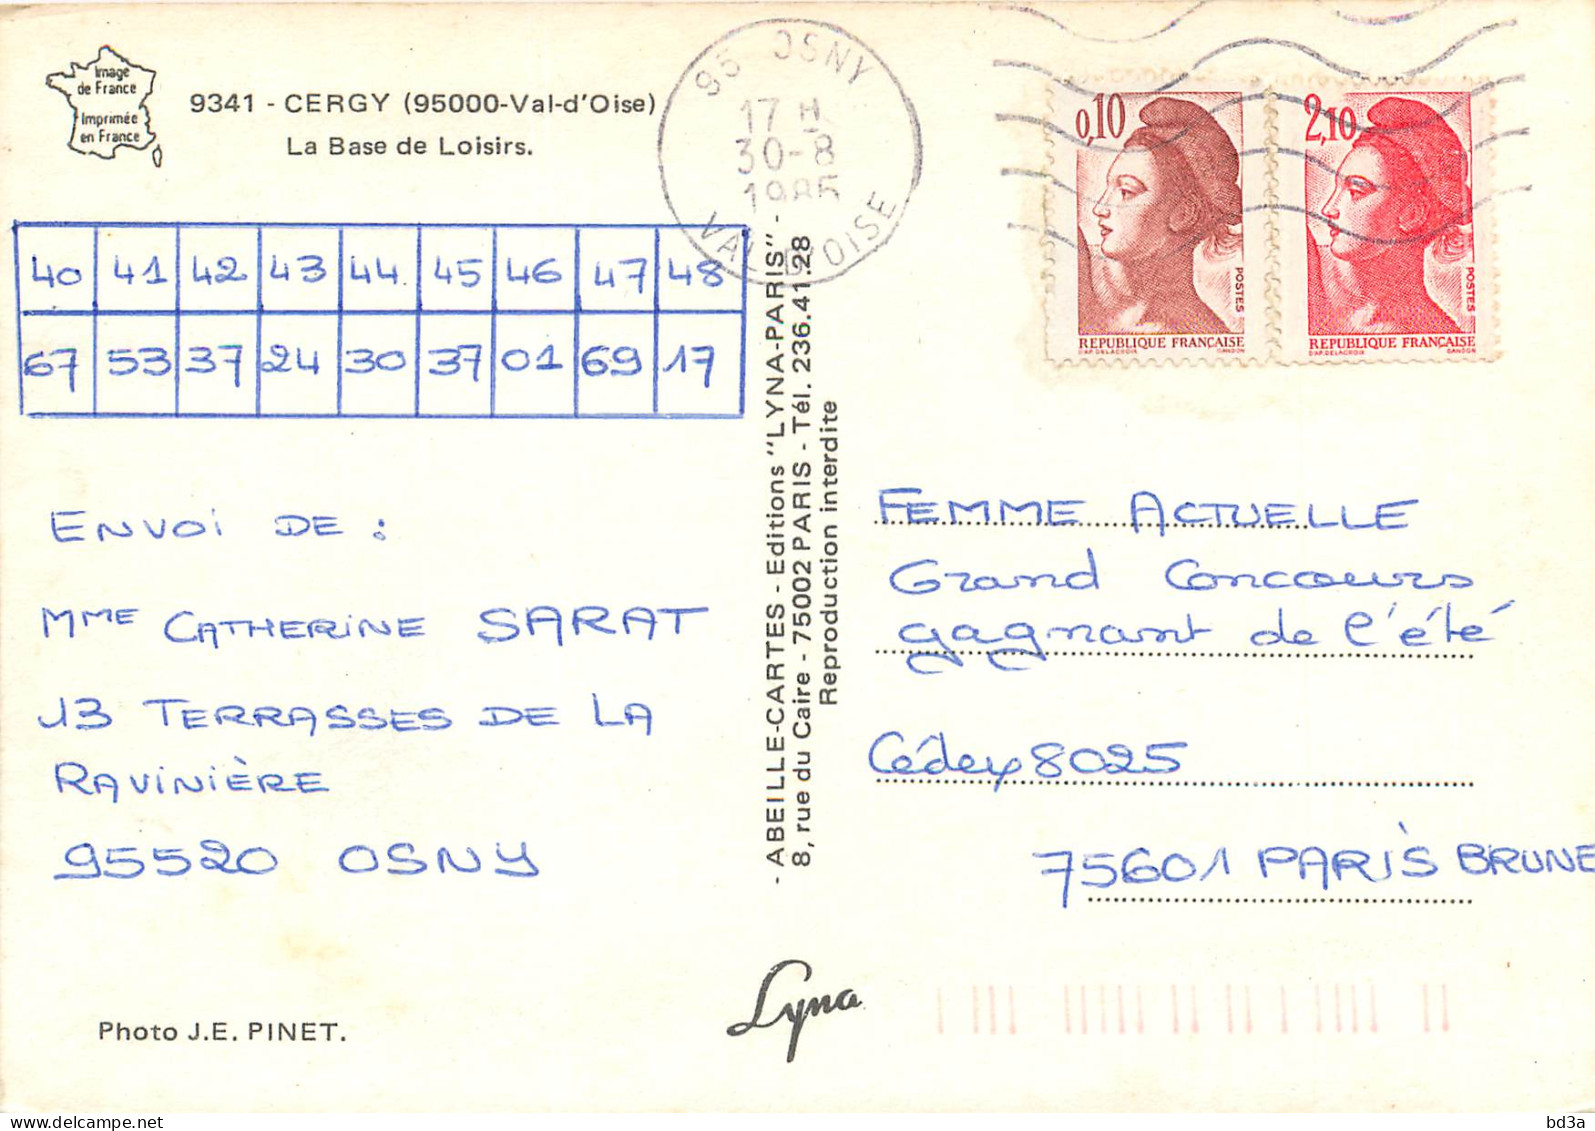 Image
de France
Imprimée
en France
9341 - CERGY (95000-Val-d'Oise)
La Base de Loisirs.
95 OSNY
17 H
30-8
1985
VAL D'OISE
0,10
POSTES
REPUBLIQUE FRANCAISE
D'AP. DELACROIX GANDON
2,10
POSTES
REPUBLIQUE FRANCAISE
D'AP. DELACROIX GANDON
40 41 42 43 44 45 46 47 48
67 53 37 24 30 37 01 69 17
ENVOI DE :
MME CATHERINE SARAT
13 TERRASSES DE LA
RAVINIÈRE
95520 OSNY
- ABEILLE-CARTES - Editions "LYNA-PARIS" -
8, rue du Caire - 75002 PARIS - Tél. 236.41.28
Reproduction interdite
FEMME ACTUELLE
Grand Concours
gagnant de l'été
Cédex 8025
75601 PARIS BRUNE
Photo J.E. PINET.
Lyna
bd3a